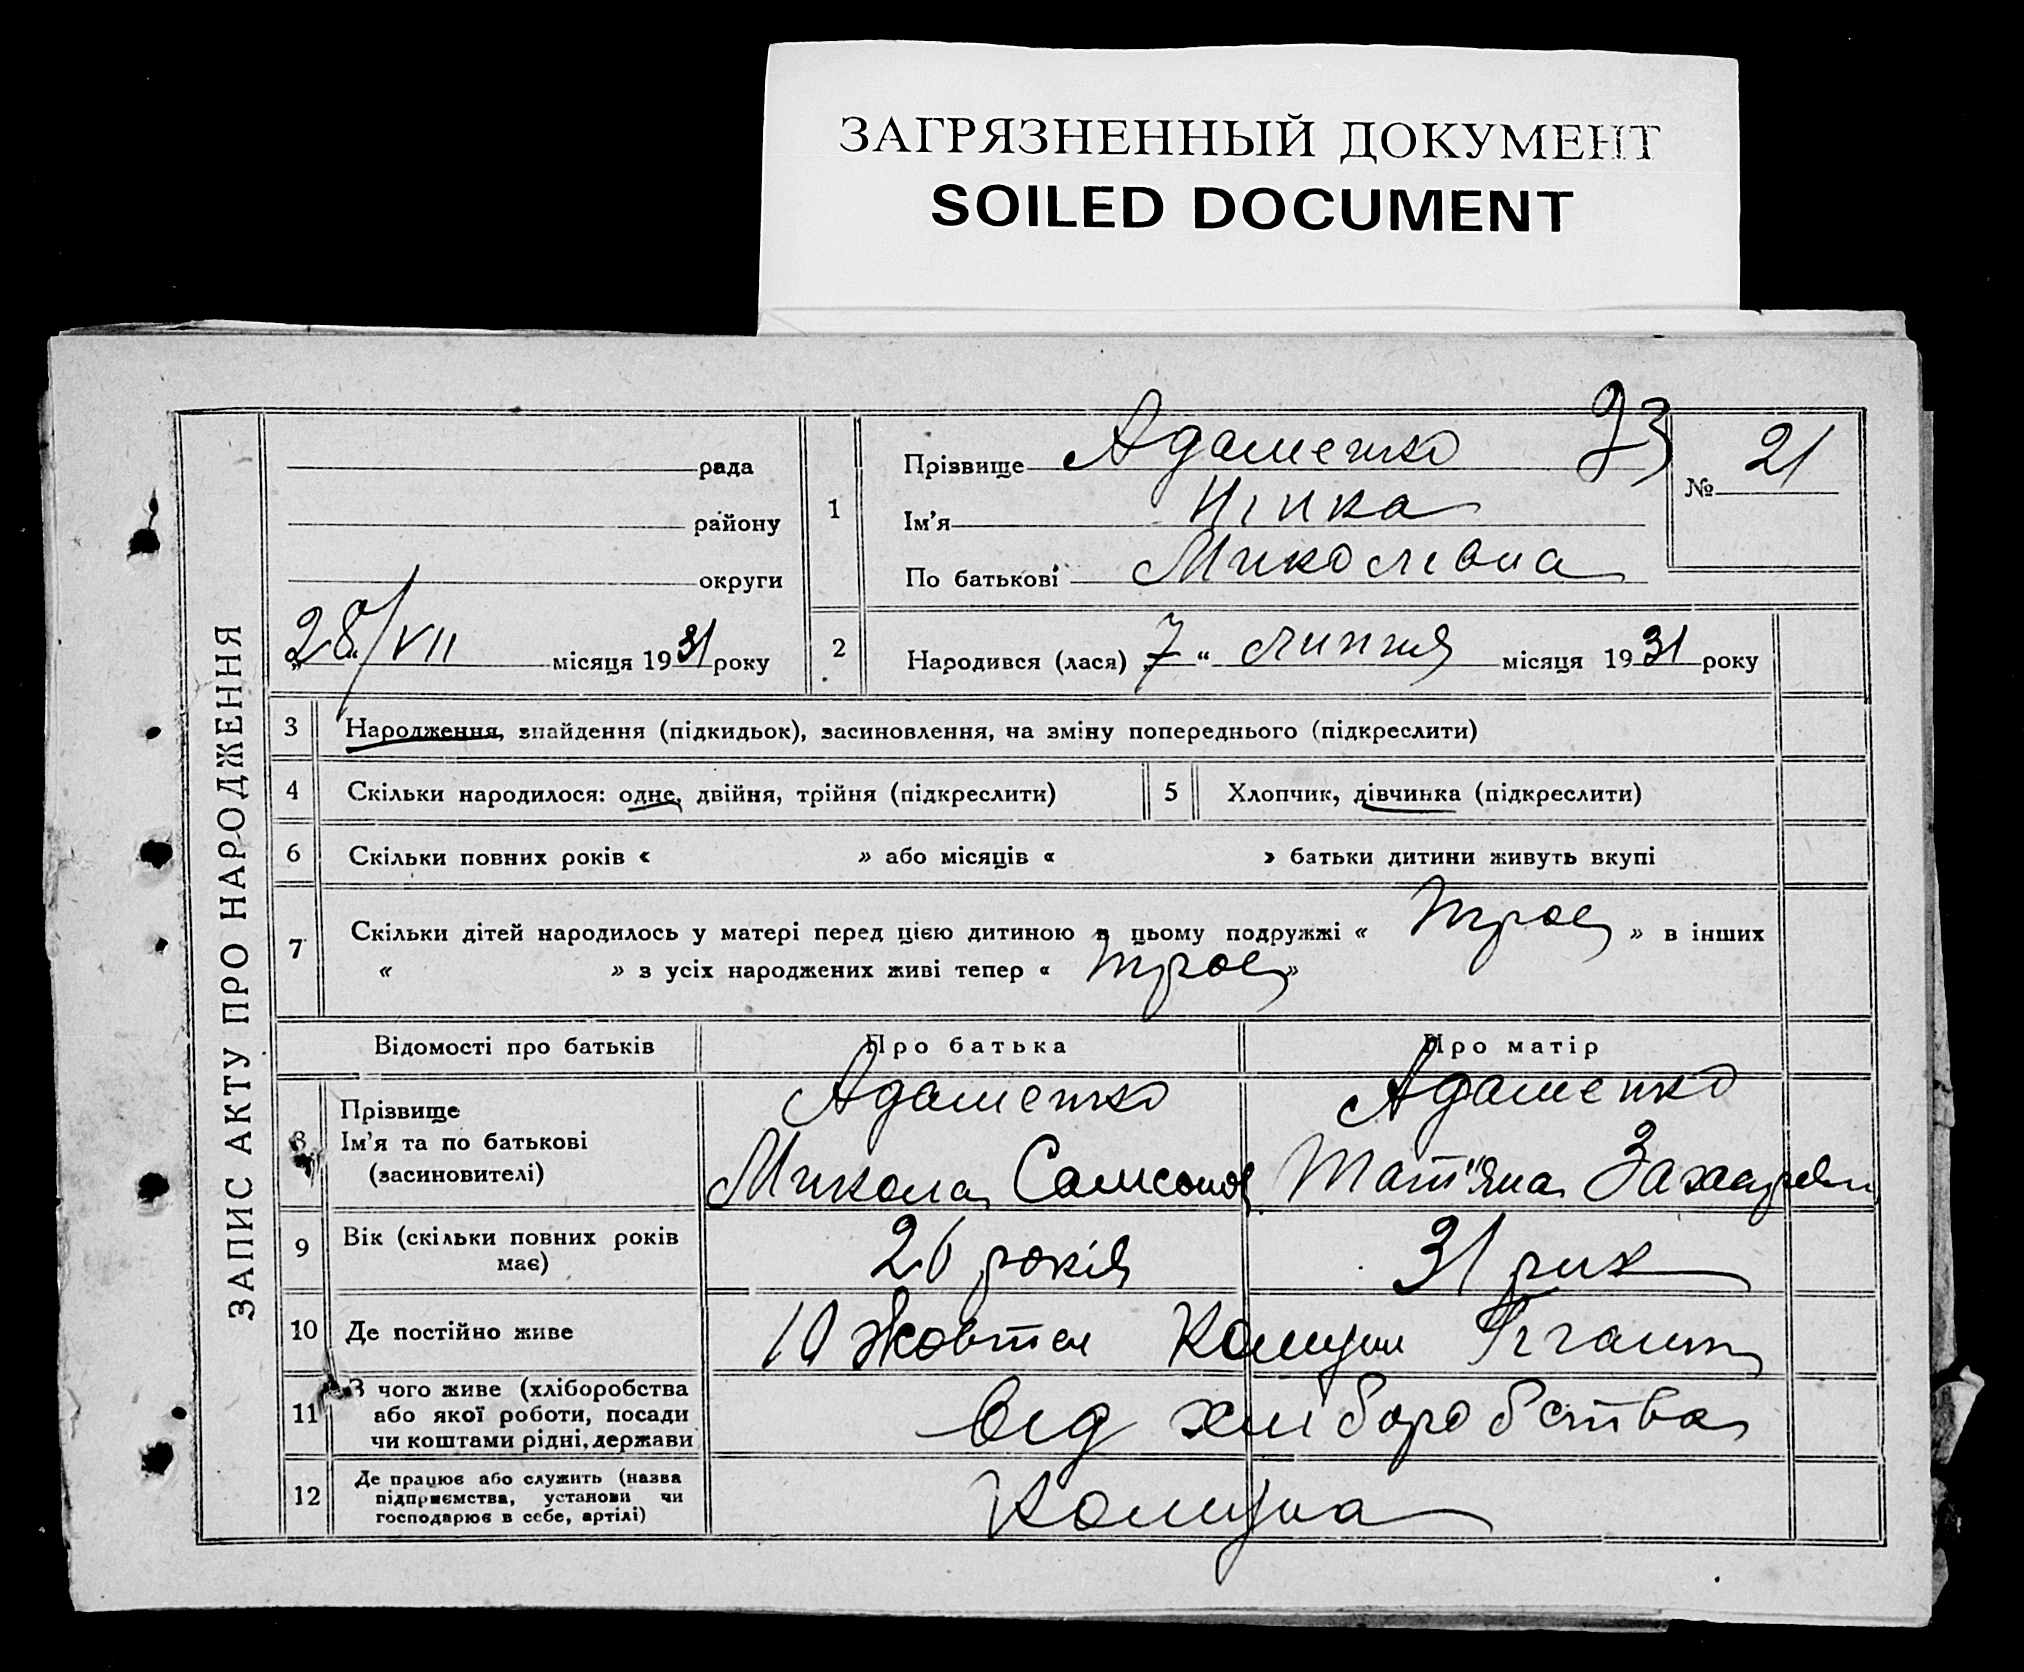 ЗАГРЯЗНЕННЫЙ ДОКУМЕНТ
SOILED DOCUMENT
ЗАПИС АКТУ ПРО НАРОДЖЕННЯ
рада
району
округи
„28“/VII місяця 1931 року
1
Прізвище Адаменко
Ім’я Нінка
По батькові Миколівна
73
№ 21
2
Народився (лася) „7“ липня місяця 1931 року
3 Народження, знайдення (підкидьок), засиновлення, на зміну попереднього (підкреслити)
4 Скільки народилося: одне, двійня, трійня (підкреслити)
5 Хлопчик, дівчинка (підкреслити)
6 Скільки повних років « » або місяців « » батьки дитини живуть вкупі
7 Скільки дітей народилось у матері перед цією дитиною в цьому подружжі « троє » в інших
« » з усіх народжених живі тепер « троє »
Відомості про батьків Про батька Про матір
8 Прізвище
Ім’я та по батькові
(засиновителі)
Адаменко
Микола Самсонов
Адаменко
Тат"яна Захаровн
9 Вік (скільки повних років
має)
26 років 31 рик
10 Де постійно живе
10 Жовтня Комуни Гігант
11 З чого живе (хліборобства
або якої роботи, посади
чи коштами рідні, держави
від хліборобства
12 Де працює або служить (назва
підприємства, установи чи
господарює в себе, артілі)
Комуна